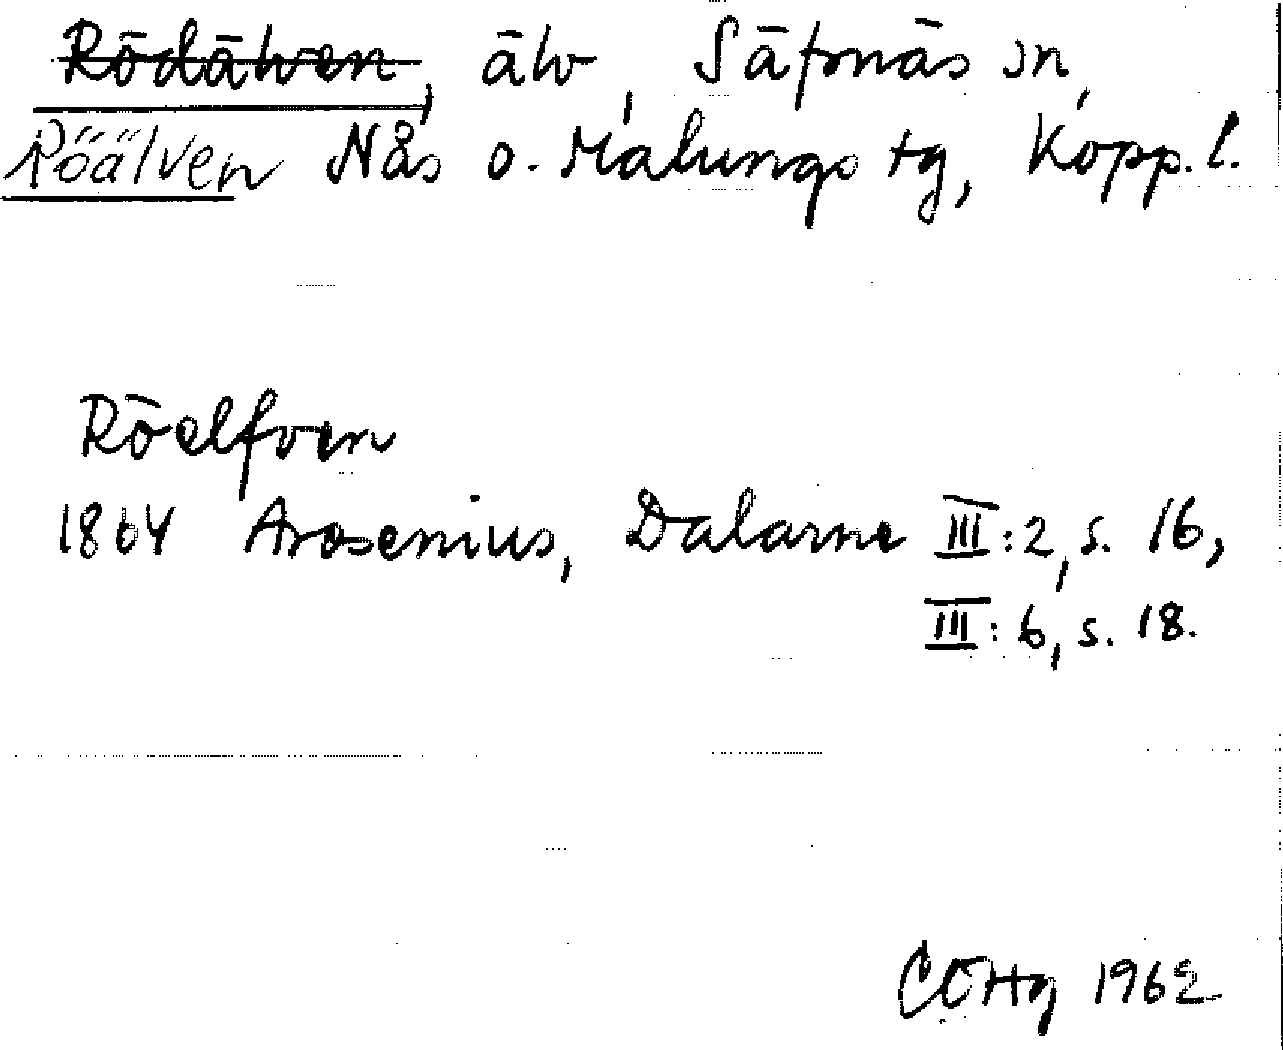 Rödälven, älv, Säfsnäs sn,
Röälven Nås o. Malungs tg, Kopp. l.
Röelfven
1864 Arosenius, Dalarne III:2, s. 16,
III: 6, s. 18.
CEHg 1962